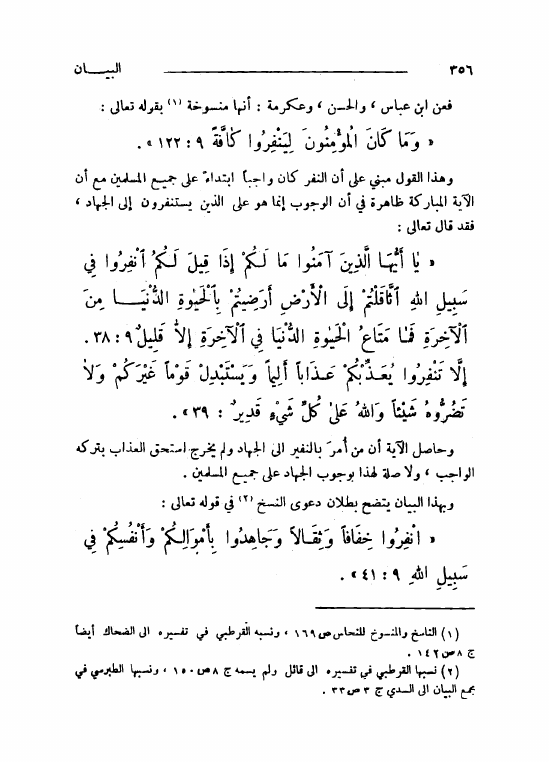 ٣٥٦ البيـــان
فعن ابن عباس ، والحسن ، وعكرمة : أنها منسوخة (١) بقوله تعالى :
« وَمَا كَانَ الْمُؤْمِنُونَ لِيَنْفِرُوا كَافَّةً ٩ : ١٢٢ » .
وهذا القول مبني على أن النفر كان واجباً ابتداءً على جميع المسلمين مع أن
الآية المباركة ظاهرة في أن الوجوب إنما هو على الذين يستنفرون إلى الجهاد ،
فقد قال تعالى :
« يَا أَيُّهَا الَّذِينَ آمَنُوا مَا لَكُمْ إِذَا قِيلَ لَكُمُ انْفِرُوا فِي
سَبِيلِ اللهِ اثَّاقَلْتُمْ إِلَى الْأَرْضِ أَرَضِيتُمْ بِالْحَيٰوةِ الدُّنْيَـــا مِنَ
الْآخِرَةِ فَمَا مَتَاعُ الْحَيٰوةِ الدُّنْيَا فِي الْآخِرَةِ إِلاَّ قَلِيلٌ ٩ : ٣٨ .
إِلَّا تَنْفِرُوا يُعَذِّبْكُمْ عَذَاباً أَلِيماً وَيَسْتَبْدِلْ قَوْماً غَيْرَكُمْ وَلاَ
تَضُرُّوهُ شَيْئاً وَاللهُ عَلىٰ كُلِّ شَيْءٍ قَدِيرٌ : ٣٩ » .
وحاصل الآية أن من أُمرَ بالنفير الى الجهاد ولم يخرج استحق العذاب بتركه
الواجب ، ولا صلة لهذا بوجوب الجهاد على جميع المسلمين .
وبهذا البيان يتضح بطلان دعوى النسخ (٢) في قوله تعالى :
« انْفِرُوا خِفَافاً وَثِقَـالاً وَجَاهِدُوا بِأَمْوَالِكُمْ وَأَنْفُسِكُمْ فِي
سَبِيلِ اللهِ ٩ : ٤١ » .
(١) الناسخ والمنسوخ للنحاس ص ١٦٩ ، ونسبه القرطبي في تفسيره الى الضحاك أيضاً
ج ٨ ص ١٤٢ .
(٢) نسبها القرطبي في تفسيره الى قائل ولم يسمه ج ٨ ص ١٥٠ ، ونسبها الطبرسي في
مجمع البيان الى السدي ج ٣ ص ٣٣ .